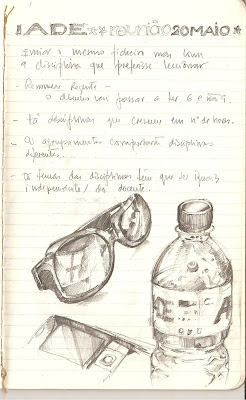 IADE ★ reunião 20 MAIO ★
Enviar o mesmo ficheiro mas com
a disciplina que preferisse leccionar
- Remover Regente -
o desenho vai passar a ter 6 e não
- há disciplinas que crescem em nº de horas.
- Os agrupamentos comportarão disciplinas
diferentes...
- Os temas das disciplinas têm que ser iguais
independente/ do docente.